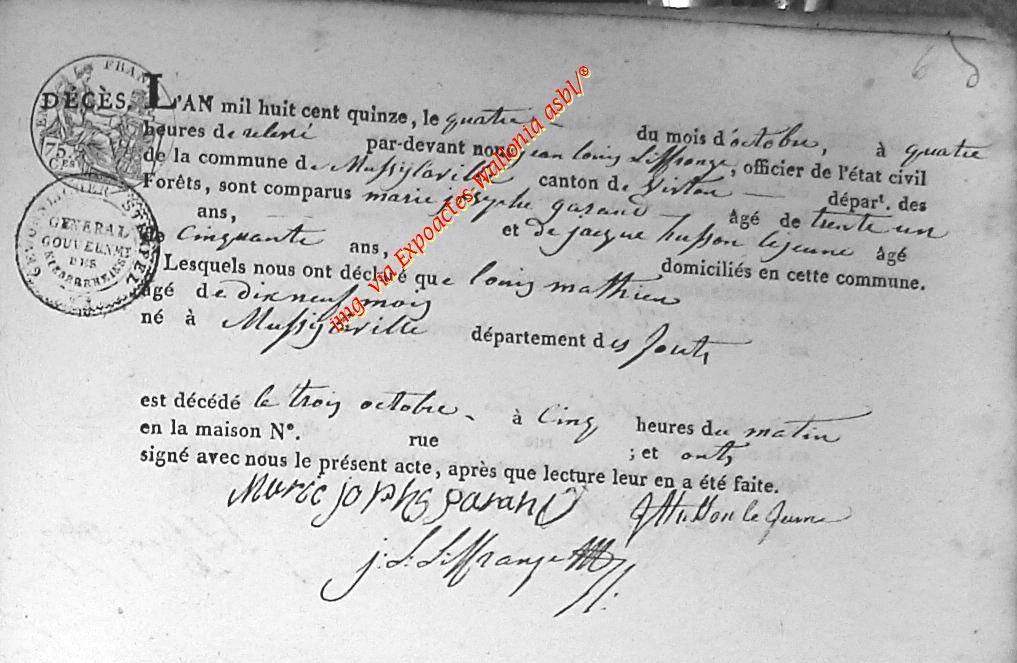 DÉCÈS. L'AN mil huit cent quinze, le quatre du mois d'octobre, à quatre
heures de relevé par-devant nous jean louis Liffrange, officier de l'état civil
de la commune de Mussylaville canton de Virton départ. des
Forêts, sont comparus marie josephe garand âgé de trente un
ans, et de jacque husson lejeune âgé
de Cinquante ans, domiciliés en cette commune.
Lesquels nous ont déclaré que louis mathieu
âgé de dix neuf mois
né à Mussylaville département des forets
est décédé le trois octobre à Cinq heures du matin
en la maison N°. rue ; et onts
signé avec nous le présent acte, après que lecture leur en a été faite.
Marie josphs garand J husson le jeune
j. L. Liffrange
75
GENERAL
GOUVERNMT
DES
img via Expoactes-Wallonia asbl/©